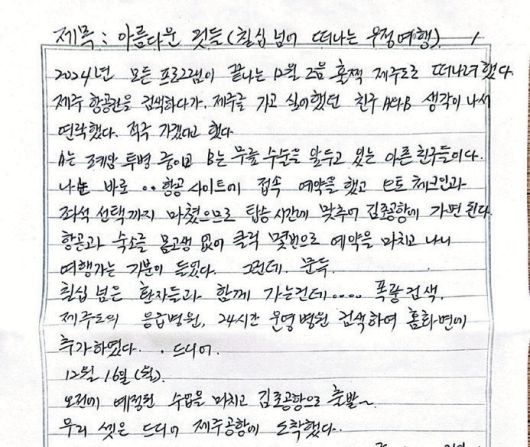 제목: 아름다운 것들 (칠십 넘어 떠나는 우정여행) 1
2024년 모든 프로그램이 끝나는 12월 2일쯤 훌쩍 제주도로 떠나려 했다
제주 항공권을 검색하다가, 제주를 가고 싶어했던 친구 A와B 생각이 나서
연락했다. 적극 가겠다고 했다
A는 폐암 투병 중이고 B는 무릎 수술을 앞두고 있는 아픈 친구들이다.
나는 바로 .. 항공 사이트에 접속 예약을 했고 셀프 체크인과
좌석 선택까지 마쳤으므로 탑승시간에 맞추어 김포공항에 가면 된다.
항공과 숙소를 몸고생 없이 클릭 몇번으로 예약을 마치고 나니
여행가는 기분이 들었다. 그런데. 문득.
칠십 넘은 환자들과 함께 가는건데.... 폭풍 검색.
제주도의 응급병원, 24시간 운영병원 검색하여 홈화면에
추가하였다. . 드디어.
12월 16일 (월).
오전에 예정된 수업을 마치고 김포공항으로 출발~
우리 셋은 드디어 제주공항에 도착했다..